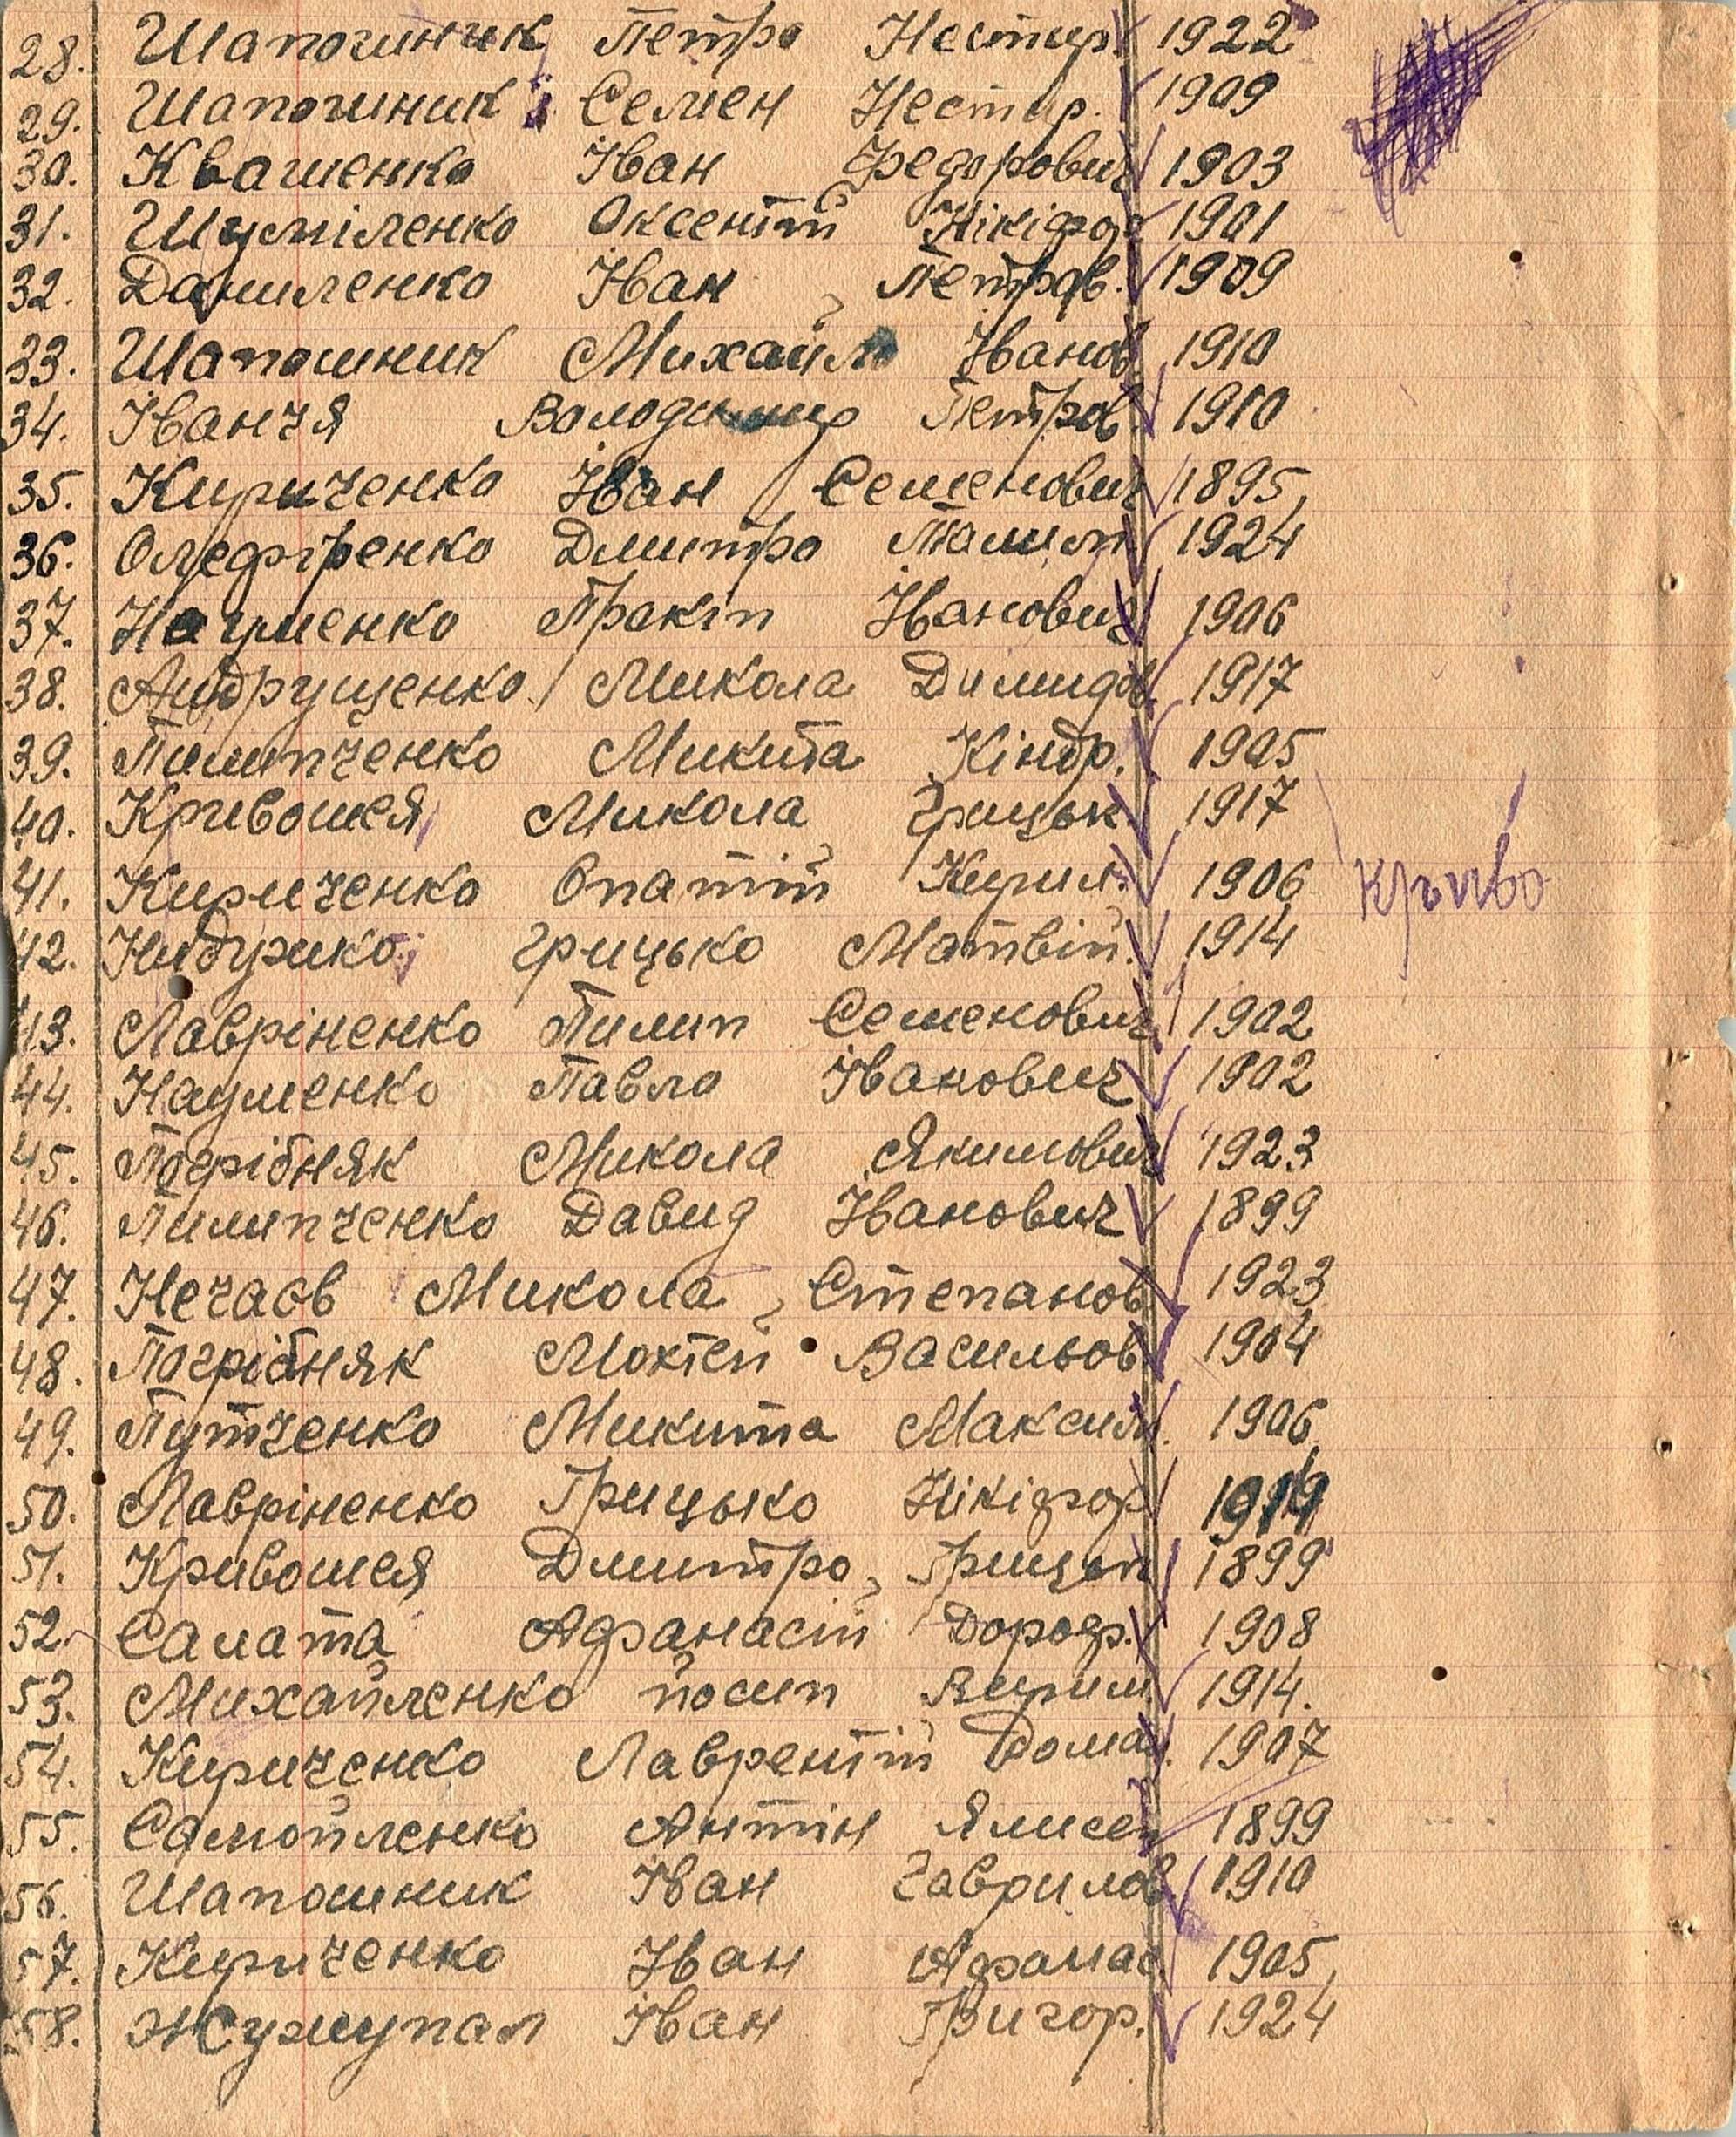 28. Шапошник Петро Нестир. 1922
29. Шапошник Семен Нестир. 1909
30. Квашенко Іван Федорович 1903
31. Шуміленко Оксентій Нікіфор 1901
32. Даниленко Іван Петров. 1909
33. Шапошник Михайло Іванов 1910
34. Іванчя Володимир Петров. 1910
35. Кириченко Іван Семенович 1895
36. Олефіренко Дмитро 1924
37. Науменко Пракіп Іванович 1906
38. Андрущенко Микола Димидов 1917
39. Пилипченко Микита Кіндр. 1905
40. Кривошея Микола Грицьк. 1917
41. Кириченко Опатій Кирил. 1906
42. Грицько Матвій. 1914
43. Лавріненко Пилип Семенович 1902
44. Науменко Павло Іванович 1902
45. Погрібняк Микола Якимович 1923
46. Пилипченко Давид Іванович 1899
47. Нечаєв Микола Степанов 1923
48. Погрібняк Мокієй Васильов 1904
49. Путченко Микита Максим. 1906
50. Лавріненко Грицько Нікіфор 1914
51. Кривошея Дмитро 1899
52. Салата Афанасій Дороф. 1908
53. Михайленко йосип 1914.
54. Кириченко Лаврентій Дома. 1907
55. Самойленко Антін Ялисей 1899
56. Шапошник Іван Гаврилов 1910
57. Кириченко Іван Афанас. 1905
58. Іван Григор. 1924